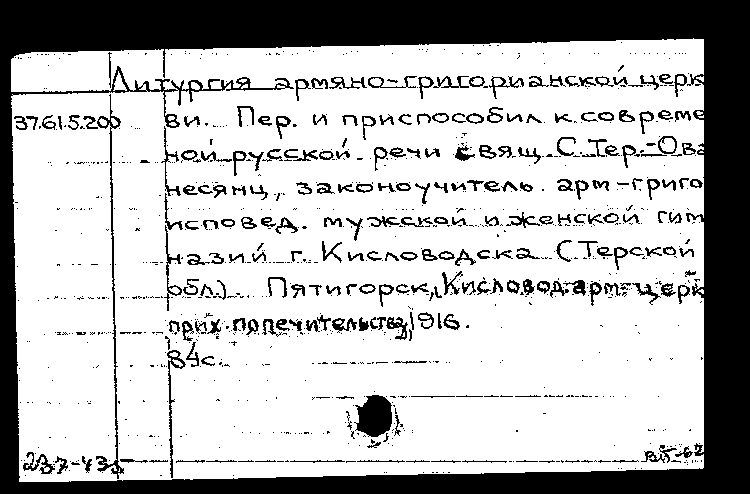 Литургия армяно-григорианской церк
37.61.5.200 ви. Пер. и приспособил к совреме
ной русской речи свящ. С.Тер.-Ова
несянц, законоучитель арм-григо
исповед. мужской и женской гим
назий г. Кисловодска (Терской
обл.). Пятигорск, Кисловод. арм-церк
прих. попечительства, 1916.
84с.
237-435